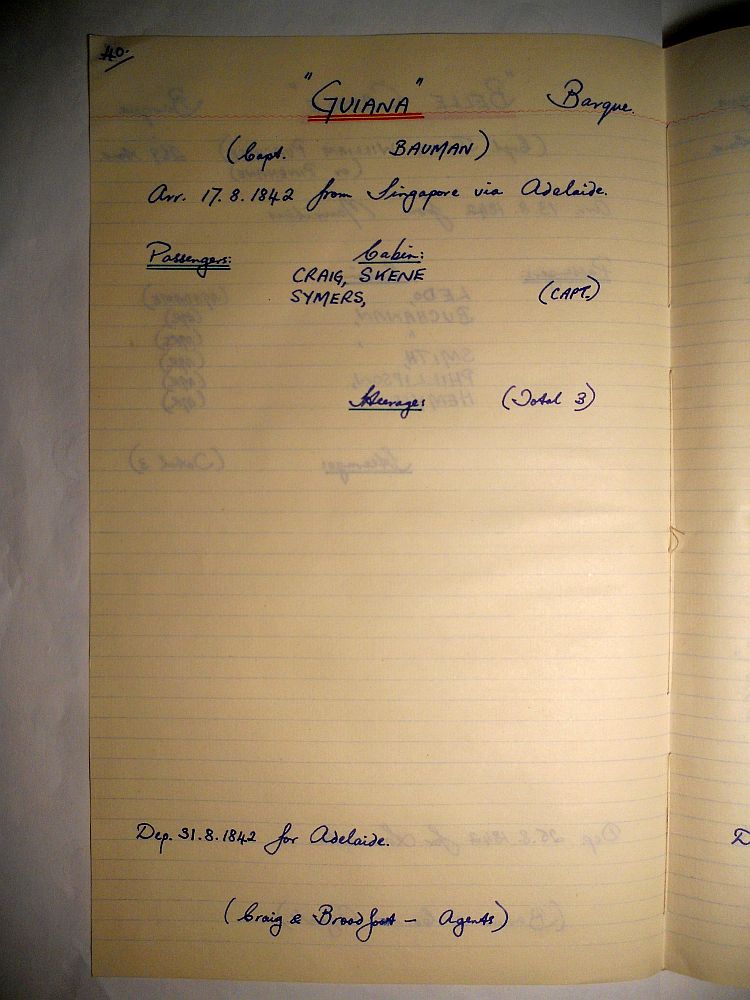 40.
"GUIANA" Barque.
(Capt. BAUMAN)
Arr. 17.8.1842 from Singapore via Adelaide.
Passengers: Cabin:
CRAIG, SKENE
SYMERS, (CAPT.)
Steerage: (Total 3)
Dep. 31.8.1842 for Adelaide.
(Craig & Broadfoot - Agents)